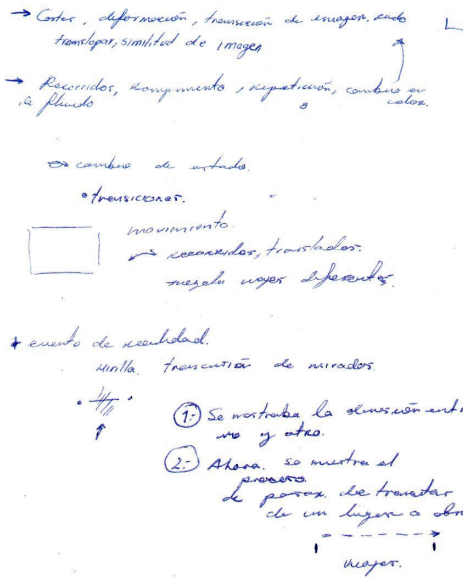 → Cortes, deformación, transición de imagen, ruido
translapar, similitud de imagen
→ Recorridos, rompimiento, repetición, cambio en
lo fluido color.
cambio de estado.
• transiciones.
movimiento.
recorridos, traslados.
mezcla viajes diferentes.
evento de realidad.
Mirilla. transición de miradas.
1.- Se mostraba la división entre
uno y otro.
2.- Ahora. se muestra el
proceso
de pasar. de transitar
de un lugar a otro
viajes.